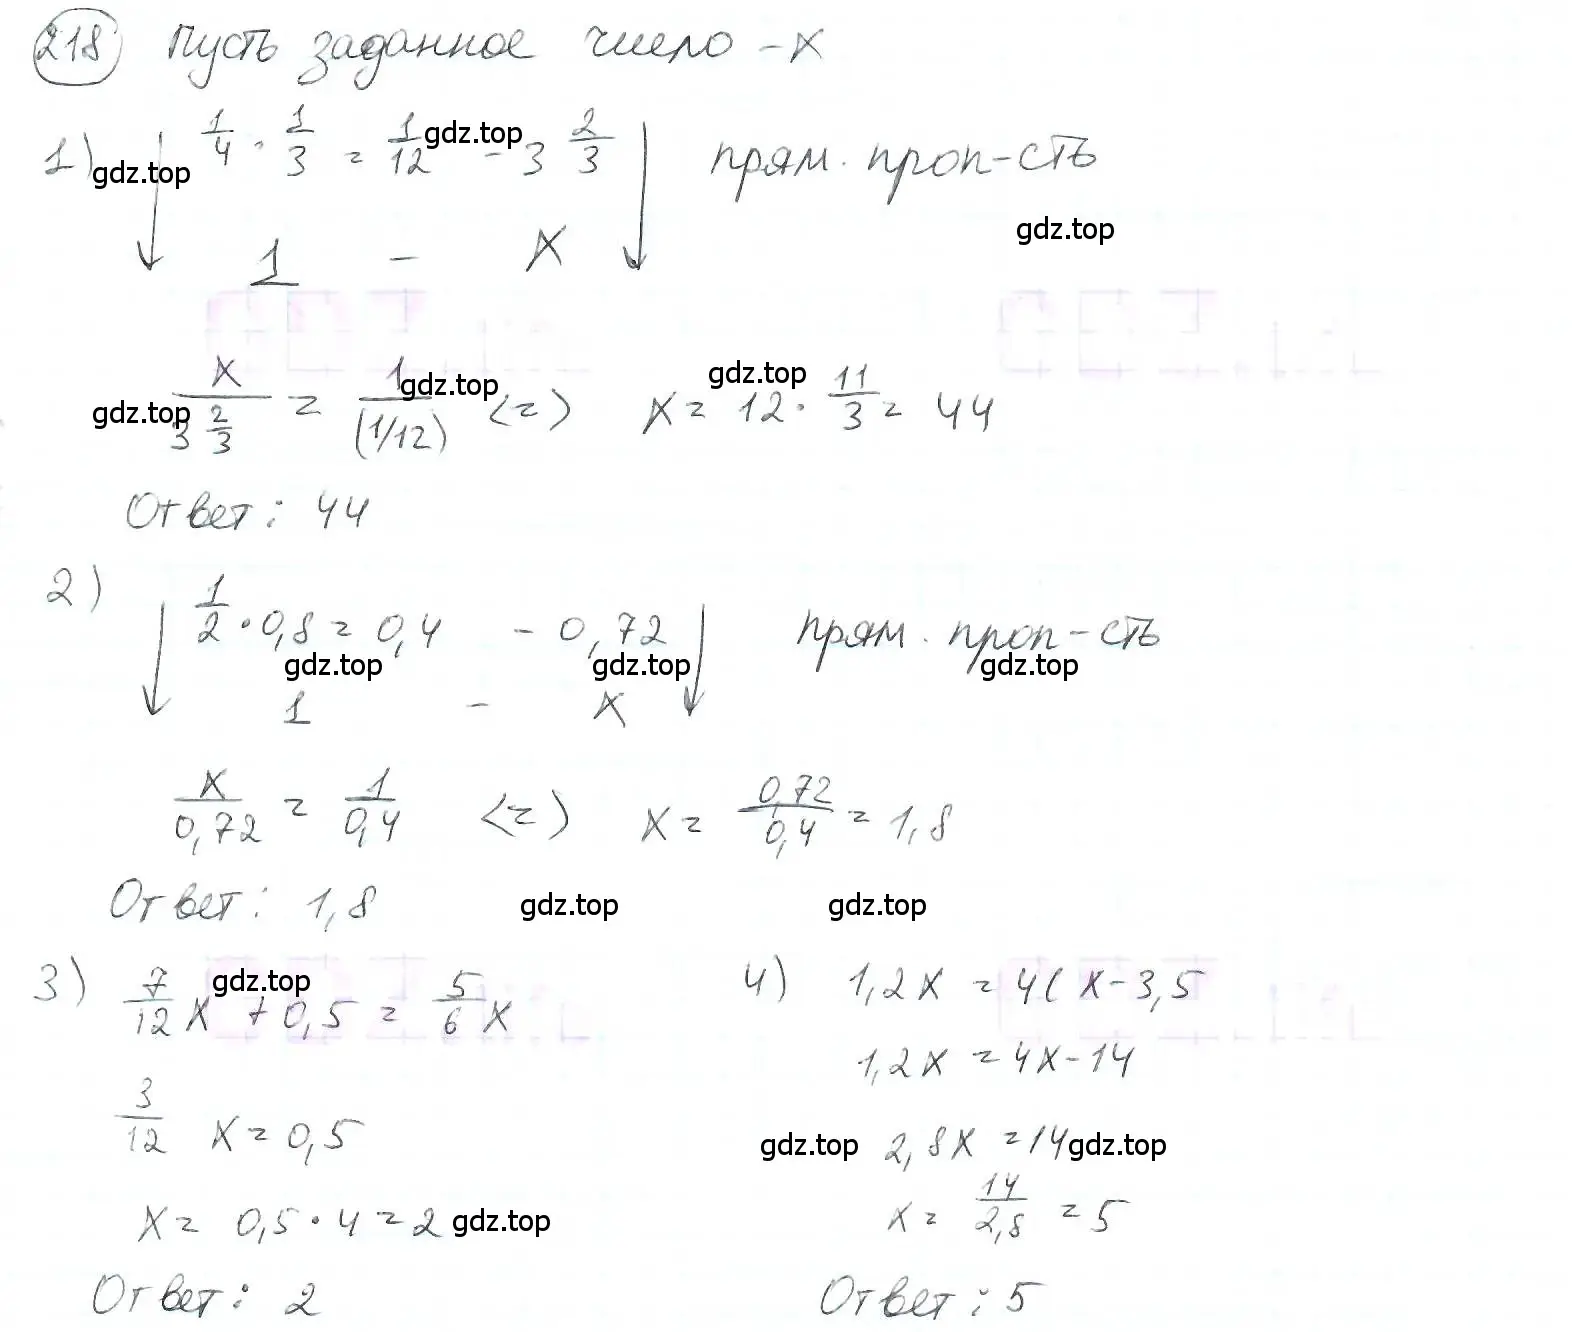 218 Пусть заданное число - x
1) 1/4 · 1/3 = 1/12 - 3 2/3 прям. проп-сть
gdz.top gdz.top
gdz.top
1 - x
x / 3 2/3 = 1 / (1/12) <=> x = 12 · 11/3 = 44
gdz.top gdz.top gdz.top
Ответ: 44
2) 1/2 · 0,8 = 0,4 - 0,72 прям. проп-сть
gdz.top gdz.top gdz.top
1 - x
x / 0,72 = 1 / 0,4 <=> x = 0,72 / 0,4 = 1,8
Ответ: 1,8 gdz.top gdz.top
3) 7/12 x + 0,5 = 5/6 x
gdz.top
3/12 x = 0,5
x = 0,5 · 4 = 2 gdz.top
Ответ: 2
4) 1,2x = 4(x - 3,5
1,2x = 4x - 14
gdz.top 2,8x = 14 gdz.top
x = 14 / 2,8 = 5
Ответ: 5